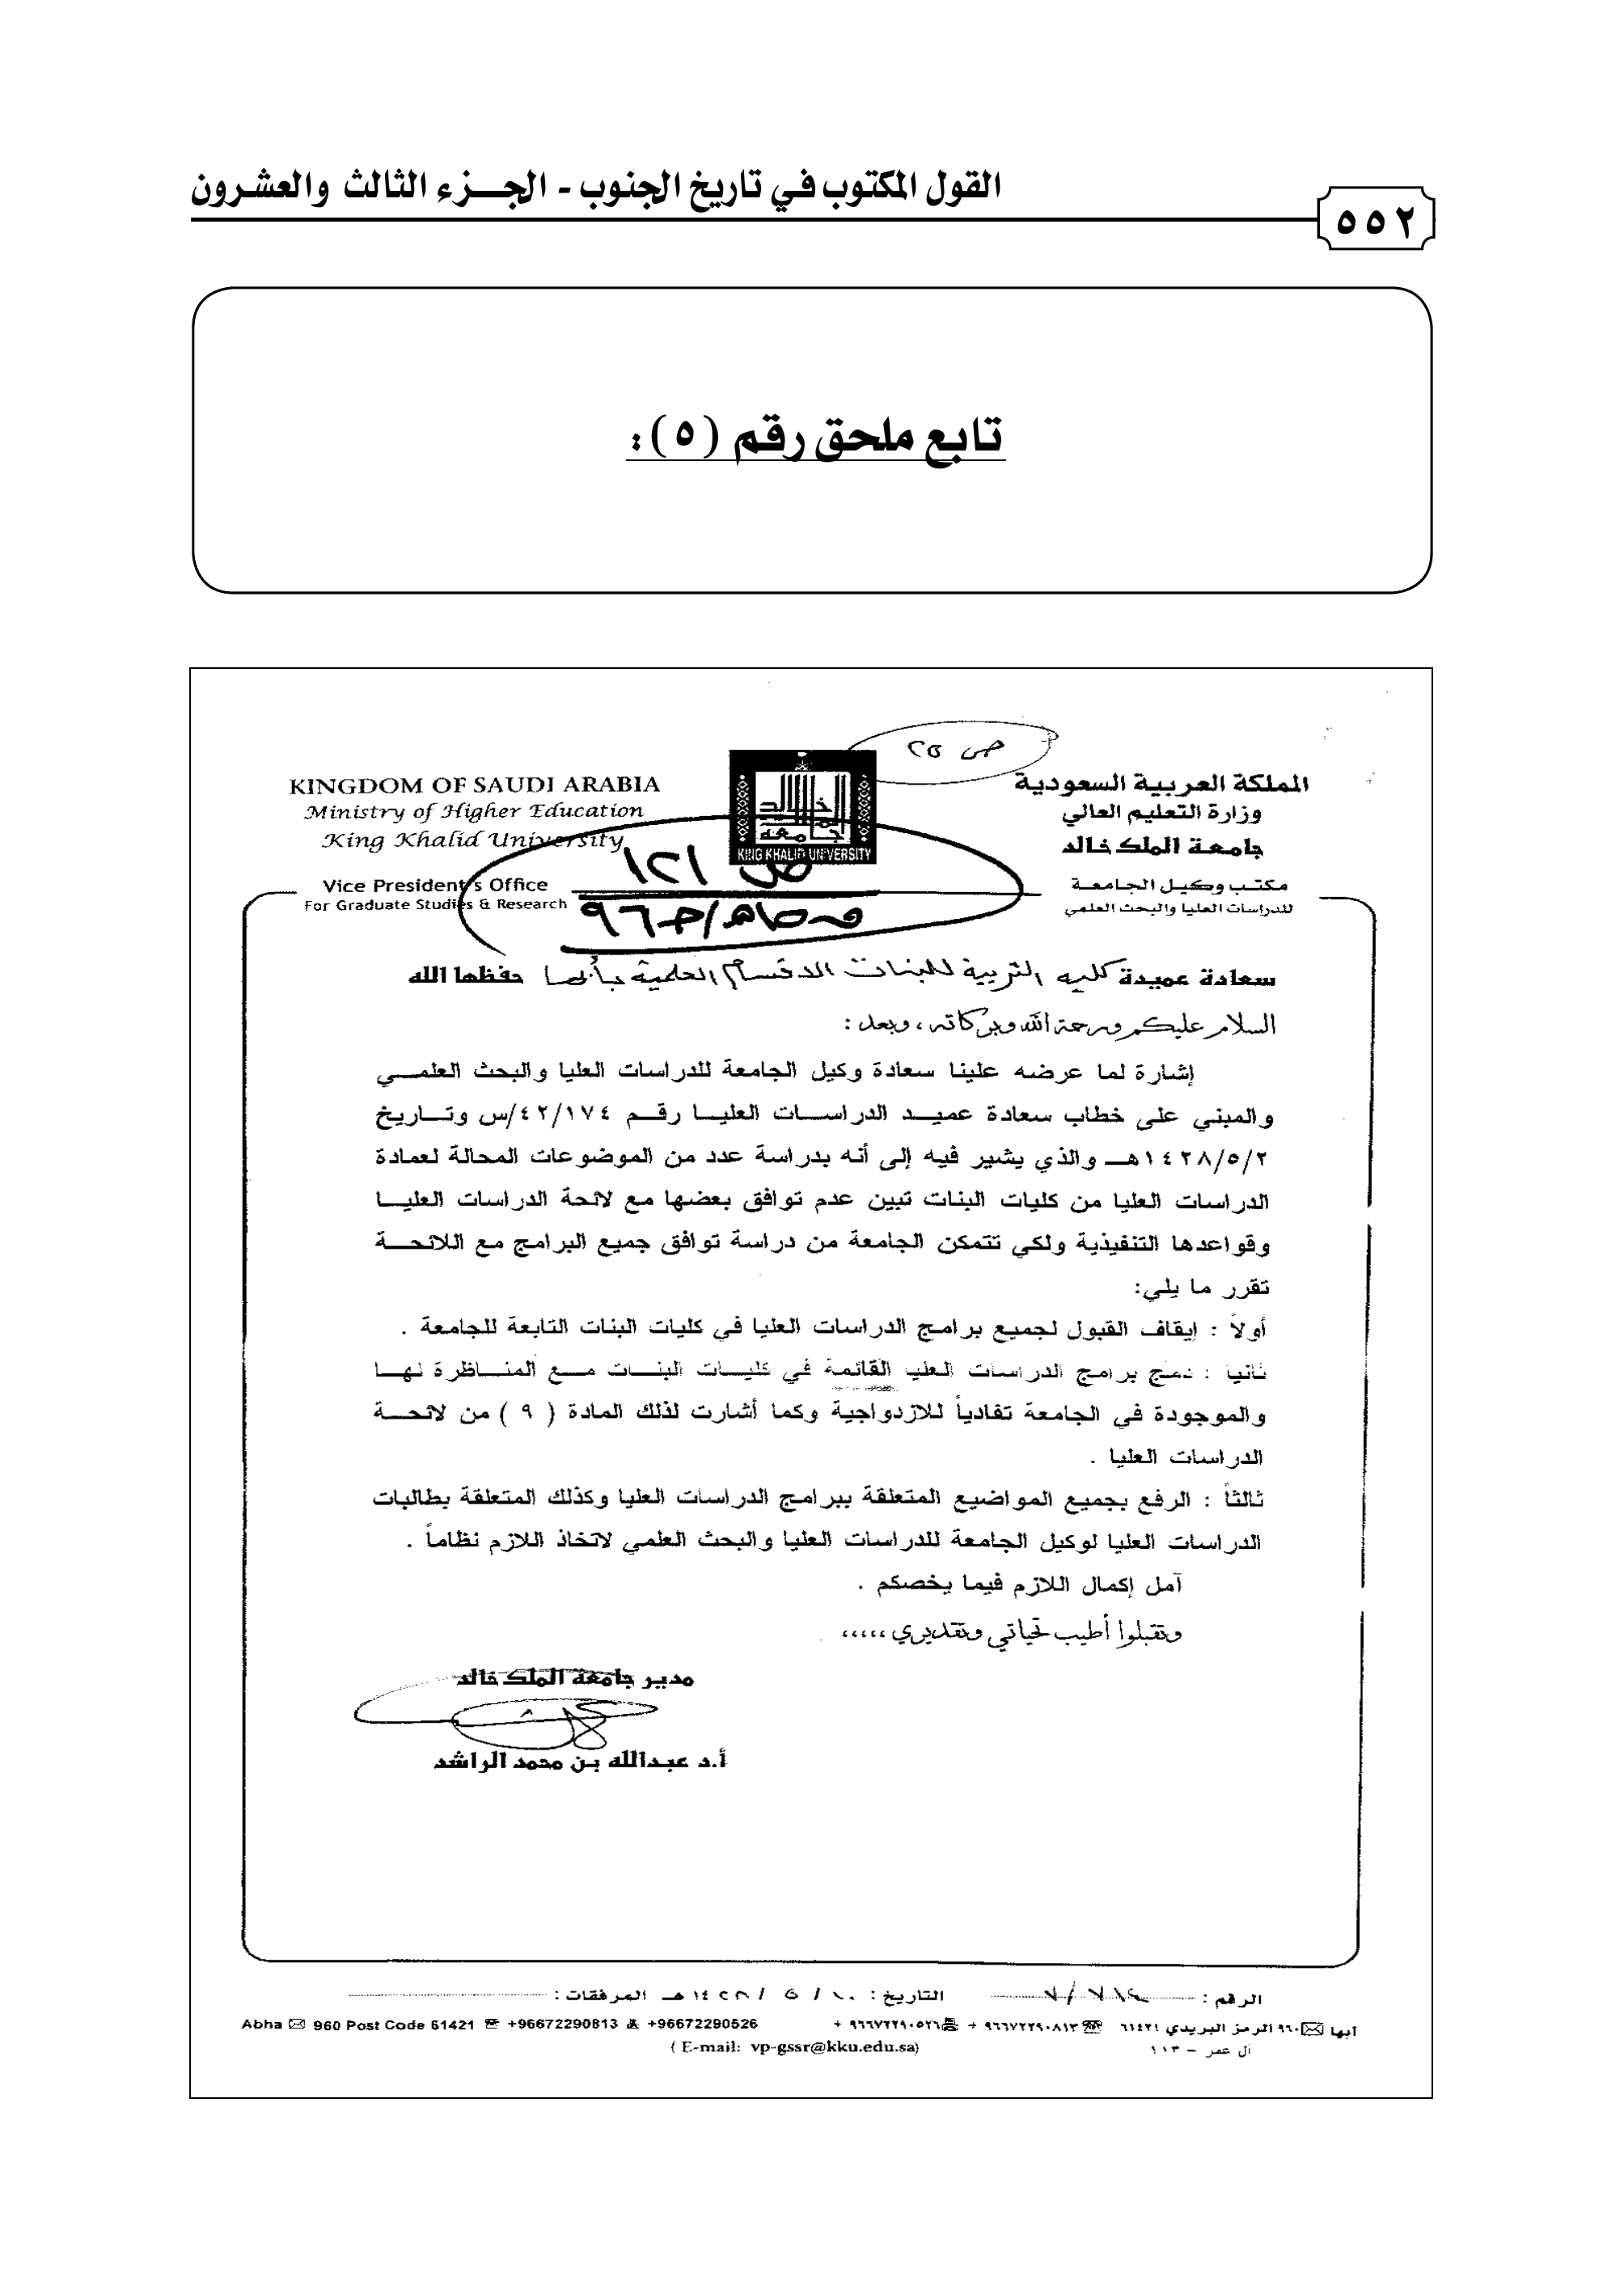 القول المكتوب في تاريخ الجنوب - الجزء الثالث والعشرون
٥٥٢
تابع ملحق رقم (٥):
ص ٢٥
KINGDOM OF SAUDI ARABIA
Ministry of Higher Education
King Khalid University
Vice President's Office
For Graduate Studies & Research
KING KHALID UNIVERSITY
المملكة العربية السعودية
وزارة التعليم العالي
جامعة الملك خالد
مكتب وكيل الجامعة
للدراسات العليا والبحث العلمي
ص ١٢١
سعادة عميدة كلية التربية للبنات الاقسام العلمية بأبها حفظها الله
السلام عليكم ورحمة الله وبركاته ، وبعد :
إشارة لما عرضه علينا سعادة وكيل الجامعة للدراسات العليا والبحث العلمي
والمبني على خطاب سعادة عميد الدراسات العليا رقم ٤٢/١٧٤/س وتاريخ
١٤٢٨/٥/٢هـ والذي يشير فيه إلى أنه بدراسة عدد من الموضوعات المحالة لعمادة
الدراسات العليا من كليات البنات تبين عدم توافق بعضها مع لائحة الدراسات العليا
وقواعدها التنفيذية ولكي تتمكن الجامعة من دراسة توافق جميع البرامج مع اللائحة
تقرر ما يلي:
أولاً : إيقاف القبول لجميع برامج الدراسات العليا في كليات البنات التابعة للجامعة .
ثانيا : دمج برامج الدراسات العليا القائمة في كليات البنات مع المناظرة لها
والموجودة في الجامعة تفادياً للازدواجية وكما أشارت لذلك المادة ( ٩ ) من لائحة
الدراسات العليا .
ثالثاً : الرفع بجميع المواضيع المتعلقة ببرامج الدراسات العليا وكذلك المتعلقة بطالبات
الدراسات العليا لوكيل الجامعة للدراسات العليا والبحث العلمي لاتخاذ اللازم نظاماً .
آمل إكمال اللازم فيما يخصكم .
وتقبلوا أطيب تحياتي وتقديري ،،،،،
مدير جامعة الملك خالد
أ.د عبدالله بن محمد الراشد
الرقم : التاريخ : ١٠ / ٥ / ١٤٢٨ هـ المرفقات :
أبها ٩٦٠ الرمز البريدي ٦١٤٢١ ٩٦٦٧٢٢٩٠٨١٣ + ٩٦٦٧٢٢٩٠٥٢٦ +
Abha 960 Post Code 61421 +96672290813 +96672290526
( E-mail: vp-gssr@kku.edu.sa)
آل عمر - ١١٣